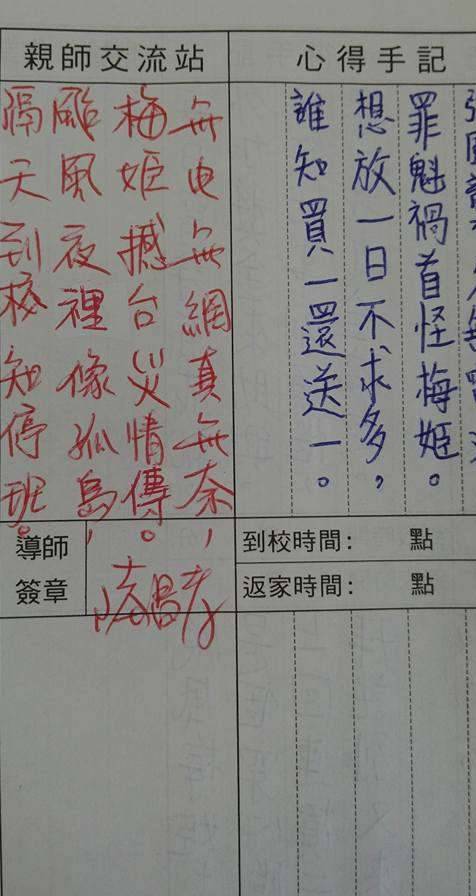 心得手記
罪魁禍首怪梅姬。
想放一日不求多，
誰知買一還送一。
親師交流站
無电無網真無奈，
梅姬撼台災情傳。
颱風夜裡像孤島，
隔天到校知停班。
到校時間： 點
返家時間： 點
導師
簽章